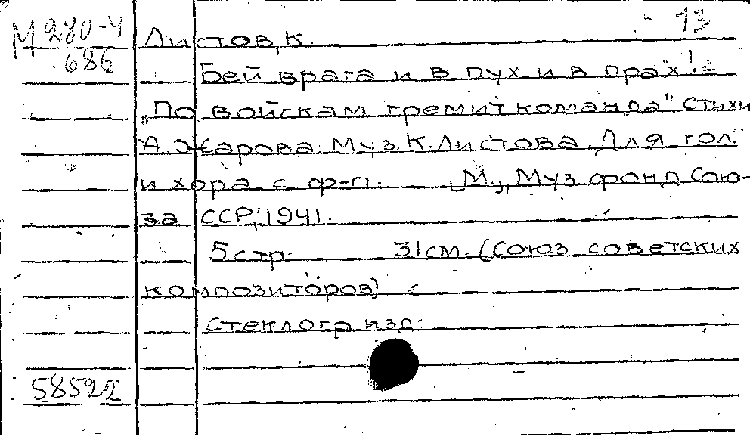 М 280-4
686
13
Листов, К.
Бей врага и в пух и в прах! =
„По войскам гремит команда" Стихи
А. Жарова. Муз. К. Листова. Для гол.
и хора с ф-п. М., Муз фонд Сою-
за ССР, 1941.
5 стр. 31 см. (Союз советских
композиторов)
Стеклогр изд.
58522